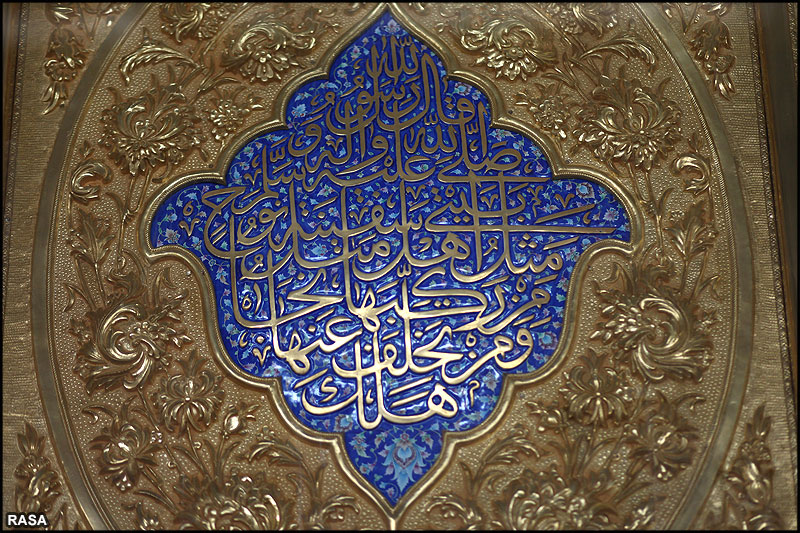 قال رسول الله
صلی الله علیه و آله و سلم
مثل اهل بیتی مثل سفینة نوح
من رکب بها نجا
و من تخلف عنها
هلك
RASA